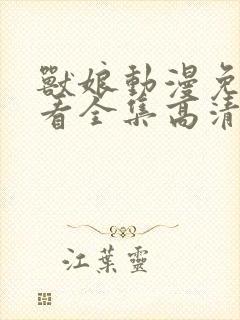 獸娘動漫免
看全集高清
江葉靈